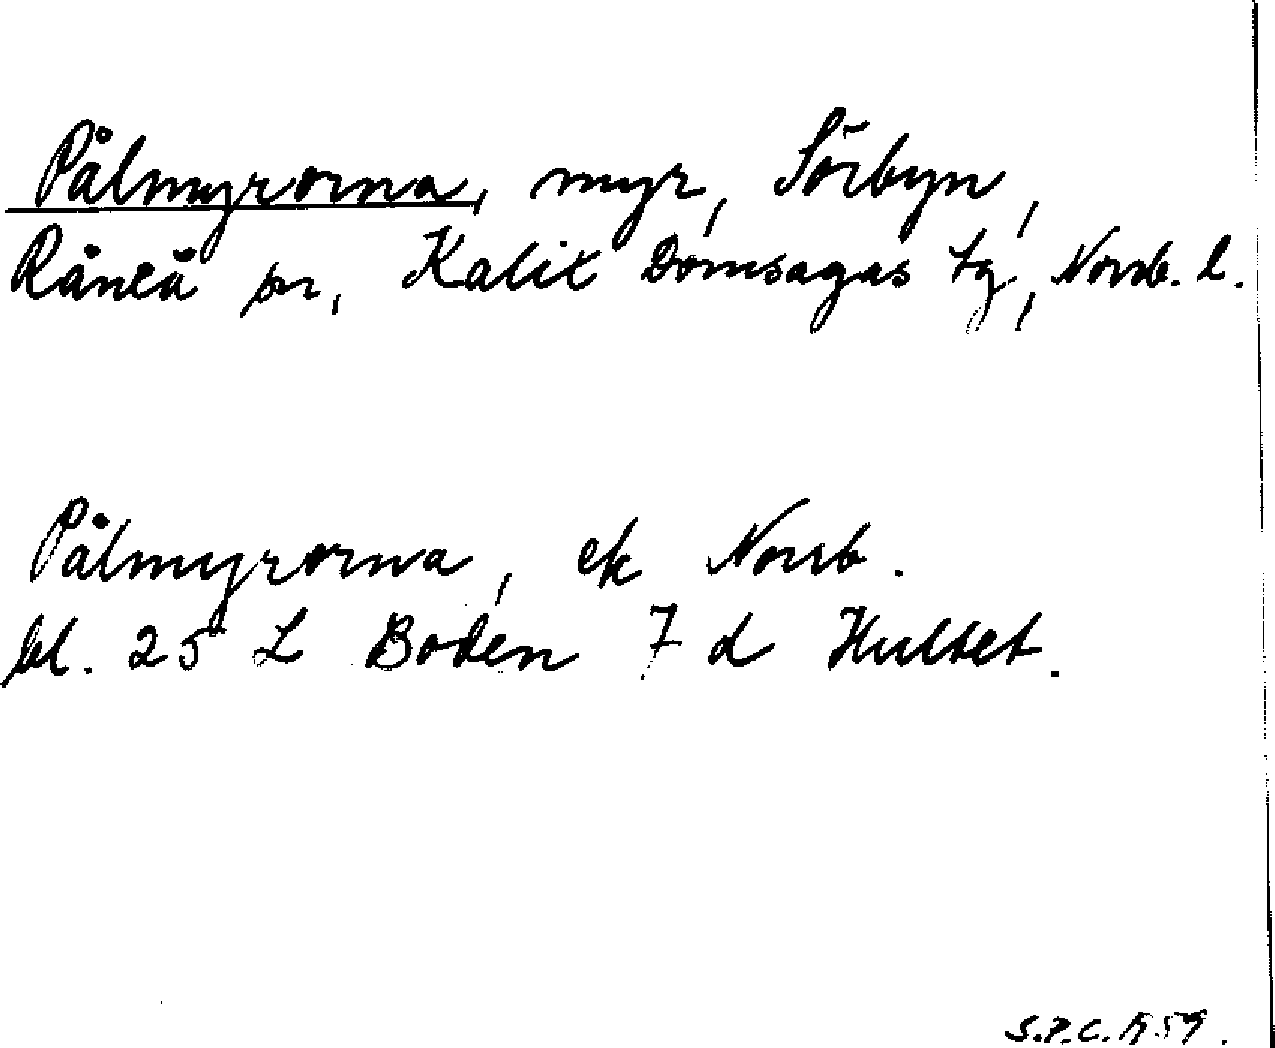 Pålmyrorna, myr, Sörbyn,
Råneå sn, Kalix Domsagas tg, Norrb. l.
Pålmyrorna, ek Norrb.
bl. 25 L Boden 7 d Hultet.
S.P.C. 1959.